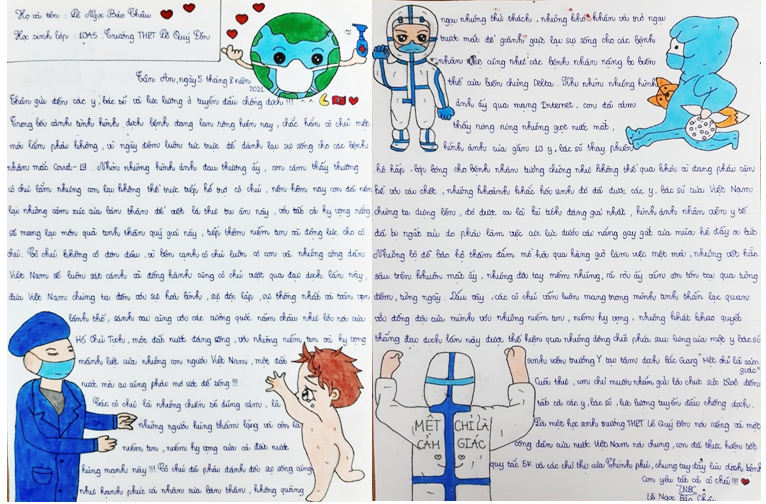 Họ và tên : Lê Ngọc Bảo Châu
Học sinh lớp : 10A5 Trường THPT Lê Quý Đôn
Tân An, ngày 5 tháng 8 năm
2021
Thân gửi đến các y, bác sĩ và lực lượng ở tuyến đầu chống dịch !!!
Trong bối cảnh tình hình dịch bệnh đang lan rộng hiện nay, chắc hẳn cô chú mệt
mỏi lắm phải không, vì ngày đêm luôn túc trực để dành lại sự sống cho các bệnh
nhân mắc Covid-19. Nhìn những hình ảnh đau thương ấy, con cảm thấy thương
cô chú lắm nhưng con lại không thể trực tiếp hỗ trợ cô chú, nên hôm nay con đã nén
lại những cảm xúc của bản thân để viết lá thư tri ân này, với tất cả hy vọng rằng
sẽ mang lại món quà tinh thần quý giá này, tiếp thêm niềm tin và động lực cho cô
chú. Cô chú không cô đơn đâu, vì bên cạnh cô chú luôn có con và những công dân
Việt Nam sẽ luôn sát cánh và đồng hành cùng cô chú vượt qua đại dịch lần này,
đưa Việt Nam chúng ta đến với sự hoà bình, sự độc lập, sự thống nhất và toàn vẹn
lãnh thổ, sánh vai cùng với các cường quốc năm châu như lời nói của
Hồ Chủ Tịch, một đất nước đáng sống, với những niềm tin và hy vọng
mãnh liệt của những con người Việt Nam, một đất
nước mà ai cũng phải mơ ước để sống !!!
Các cô chú là những chiến sĩ dũng cảm, là
những người hùng thầm lặng và còn là
niềm tin, niềm hy vọng của cả đất nước
hùng mạnh này !!! Cô chú đã phải đánh đổi sự sống cũng
như hạnh phúc cá nhân của bản thân, không quãng
ngại những thử thách, những khó khăn và trở ngại
trước mắt để giành giựt lại sự sống cho các bệnh
nhân nhẹ cũng như các bệnh nhân nặng bị biến
thể của biến chủng Delta. Khi nhìn những hình
ảnh ấy qua mạng Internet, con đã cảm
thấy rưng rưng những giọt nước mắt,
hình ảnh của gần 10 y, bác sĩ thay phiên
hô hấp, lấp bóng cho bệnh nhân tưởng chừng như không thể qua khỏi vì đang phải cầm
kề với cái chết, những khoảnh khắc hồi sinh đó đã được các y, bác sĩ của Việt Nam
chúng ta dựng lên, đó được coi là kì tích đáng giá nhất, hình ảnh nhân viên y tế
đã bị ngất xỉu do phải làm việc cực lực dưới cái nắng gay gắt của mùa hè đầy oi bức
Những bộ đồ bảo hộ thấm đẫm mồ hôi qua hàng giờ làm việc mệt mỏi, những vết hằn
sâu trên khuôn mặt ấy, những đôi tay mềm nhũng, rồi ấy vẫn còn tồn tại qua từng
đêm, từng ngày. Dẫu vậy, các cô chú vẫn luôn mang trong mình tinh thần lạc quan
với đồng đội của mình với những niềm tin, niềm hy vọng, những khát khao quyết
thắng đại dịch lần này được thể hiện qua những dòng chữ phía sau lưng của một y bác sĩ
sinh viên trường Y tại tâm dịch Bắc Giang "Mệt chỉ là cảm
giác"
Cuối thư, con chỉ muốn nhắn gửi lời chúc sức khoẻ đến
tất cả các y, bác sĩ, lực lượng tuyến đầu chống dịch.
Là một học sinh trường THPT Lê Quý Đôn nói riêng và một
công dân của nước Việt Nam nói chung, con đã thực hiện tốt
quy tắc 5K và các chỉ thị của Chính phủ, chung tay đẩy lùi dịch bệnh
Con yêu tất cả cô chú !!!
LNBC
Lê Ngọc Bảo Châu
MỆT CHỈ LÀ
CẢM GIÁC